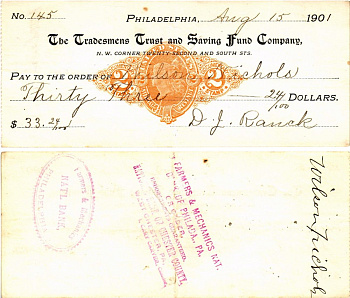 No. 145
PHILADELPHIA, Aug 15 1901
The Tradesmens Trust and Saving Fund Company,
N. W. CORNER TWENTY-SECOND AND SOUTH STS.
PAY TO THE ORDER OF Wilson Nichols
2 2
Thirty Three 24/100 DOLLARS.
$ 33.24/100 D. J. Ranck
NATL. BANK
FARMERS & MECHANICS NAT.
BANK OF PHILADA, PA.
CHESTER COUNTY,
Wilson Nichols